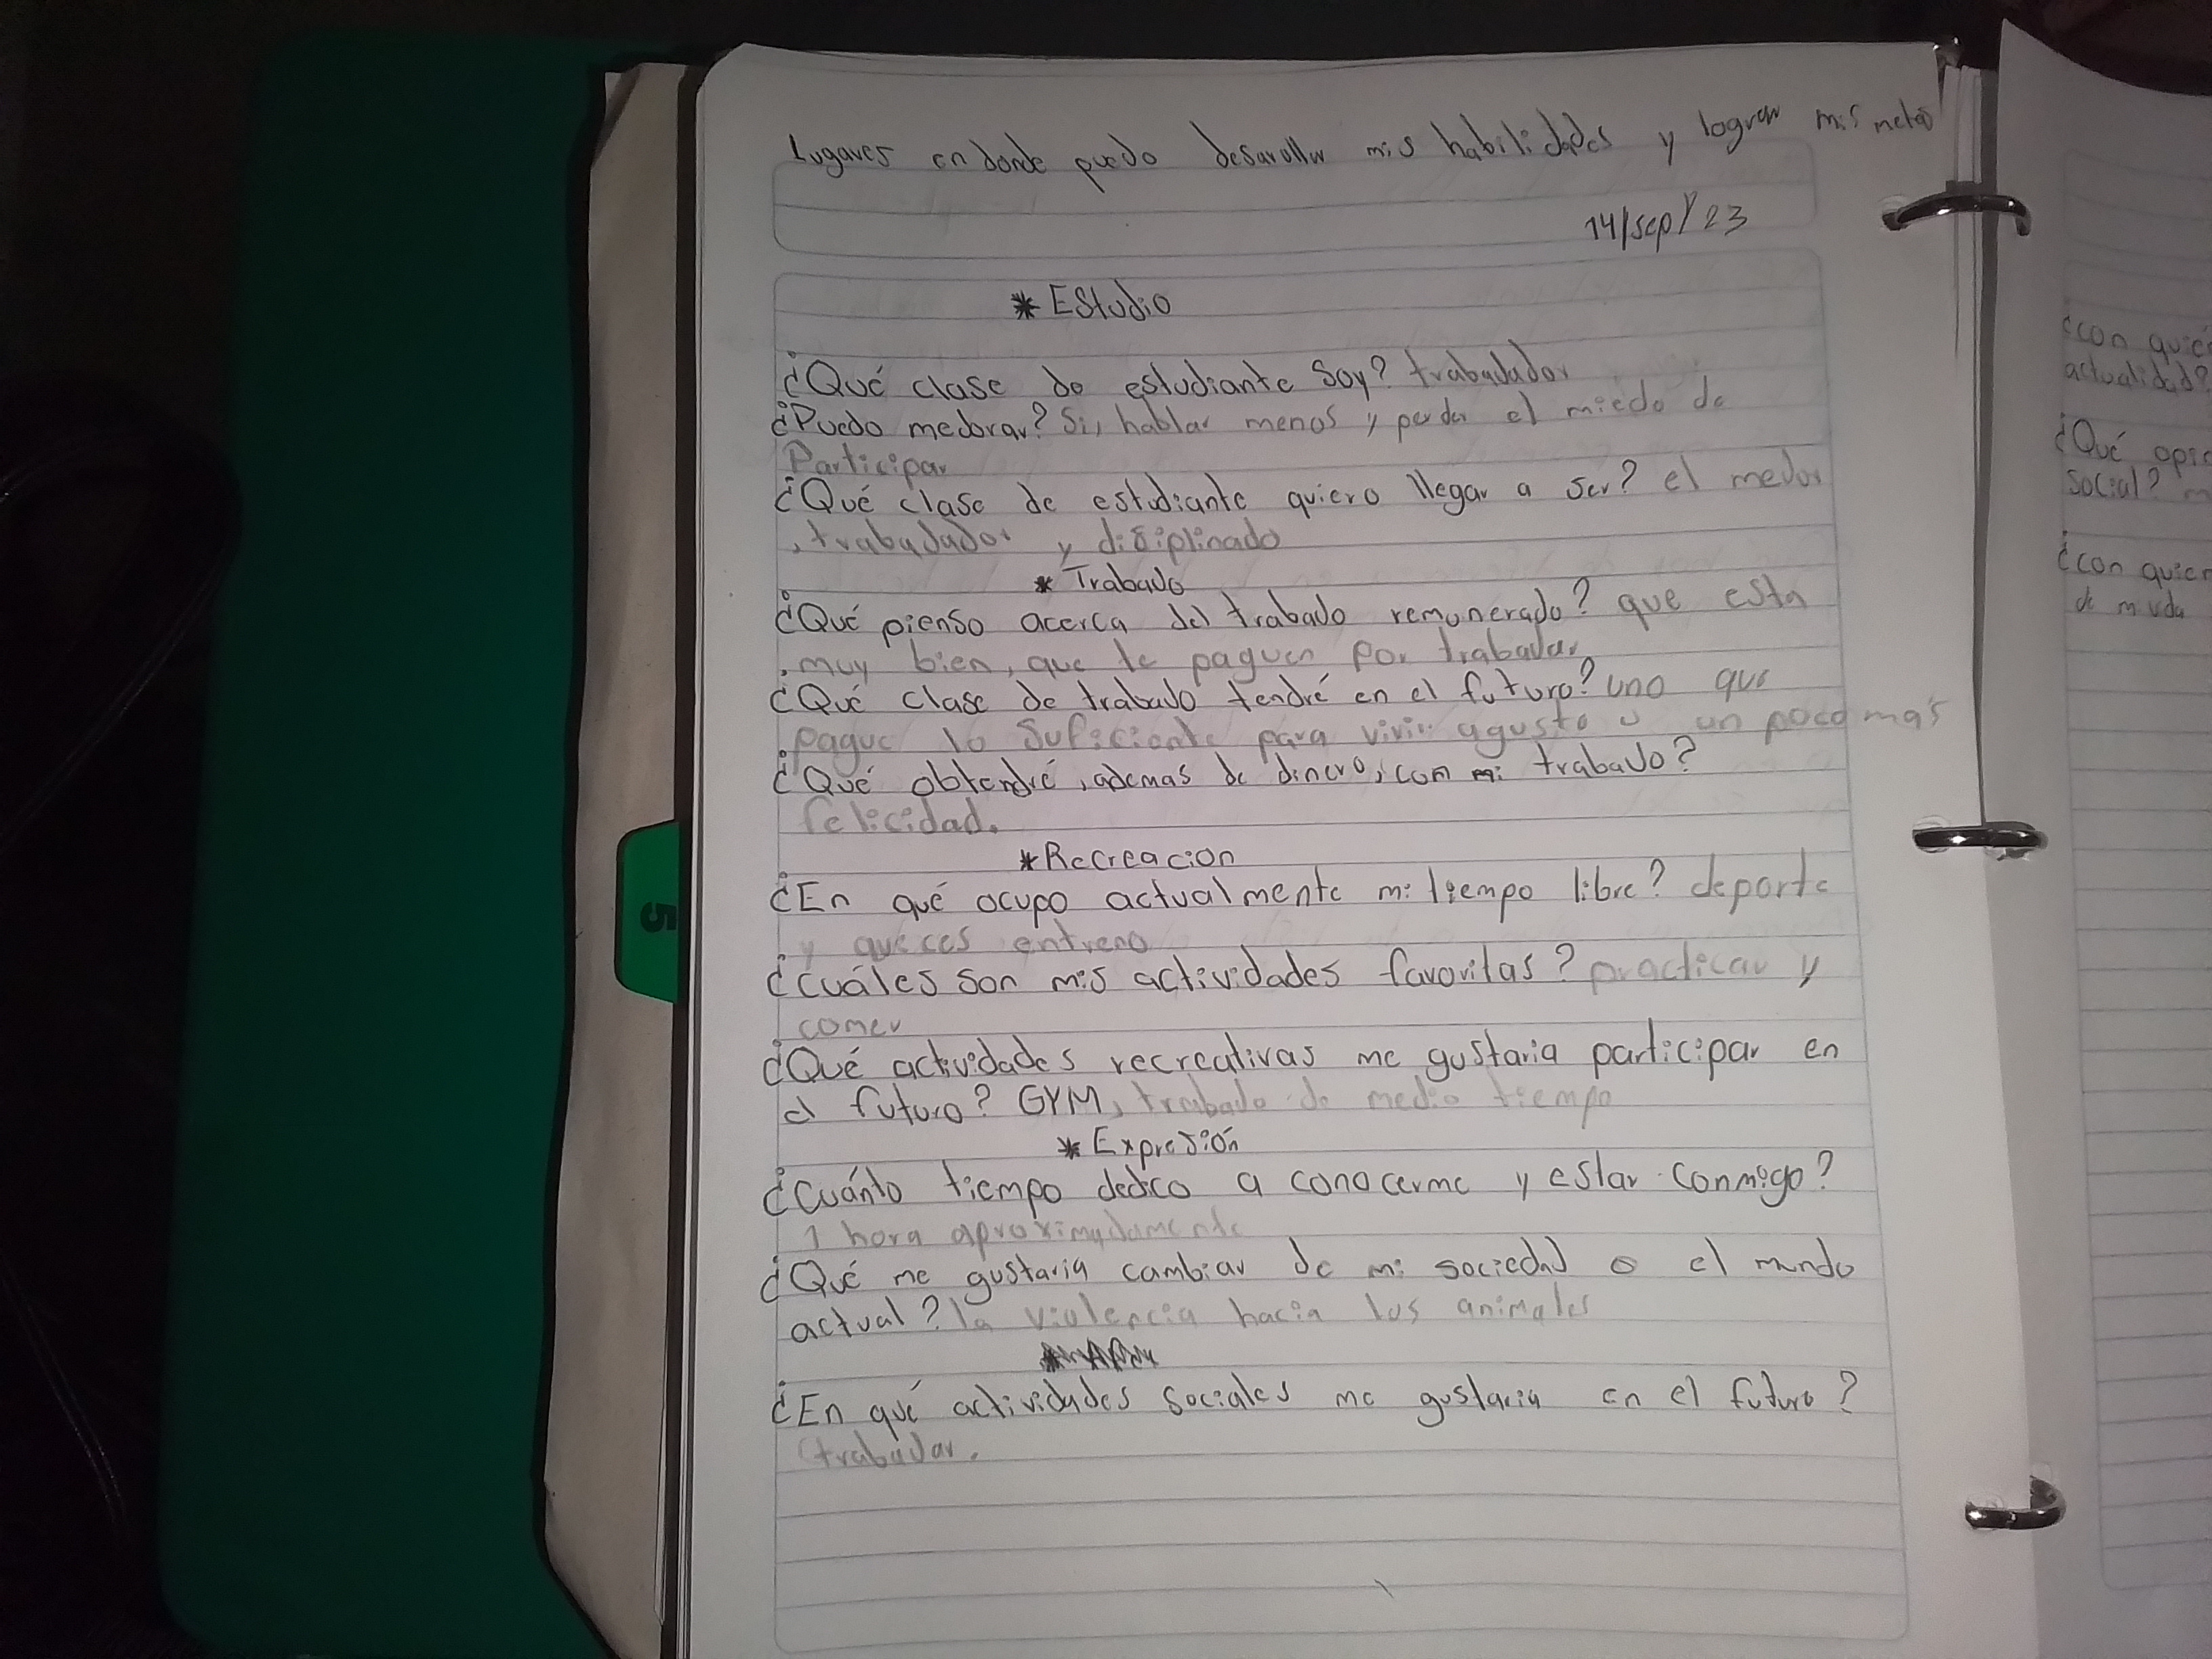 Lugares en donde puedo desarollar mis habilidades y lograr mis metas
14/sep/23
* Estudio
¿Qué clase de estudiante soy? trabajador
¿Puedo mejorar? Si, hablar menos y perder el miedo de
Participar
¿Qué clase de estudiante quiero llegar a ser? el mejor
, trabajador y disiplinado
* Trabajo
¿Qué pienso acerca del trabajo remunerado? que esta
muy bien, que te paguen por trabajar
¿Qué clase de trabajo tendré en el futuro? uno que
pague lo suficiente para vivir agusto o un poco más
¿Qué obtendré, ademas de dinero, con mi trabajo?
felicidad.
* Recreacion
¿En qué ocupo actualmente mi tiempo libre? deporte
y aveces entreno
¿Cuáles son mis actividades favoritas? practicar y
comer
¿Qué actividades recreativas me gustaria participar en
el futuro? GYM, trabajo de medio tiempo
* Expresión
¿Cuánto tiempo dedico a conocerme y estar conmigo?
1 hora aproximadamente
¿Qué me gustaria cambiar de mi sociedad o el mundo
actual? la violencia hacia los animales
¿En qué actividades sociales me gustaria en el futuro?
trabajar.
¿con
actualidad?
¿Qué
social?
¿con
de